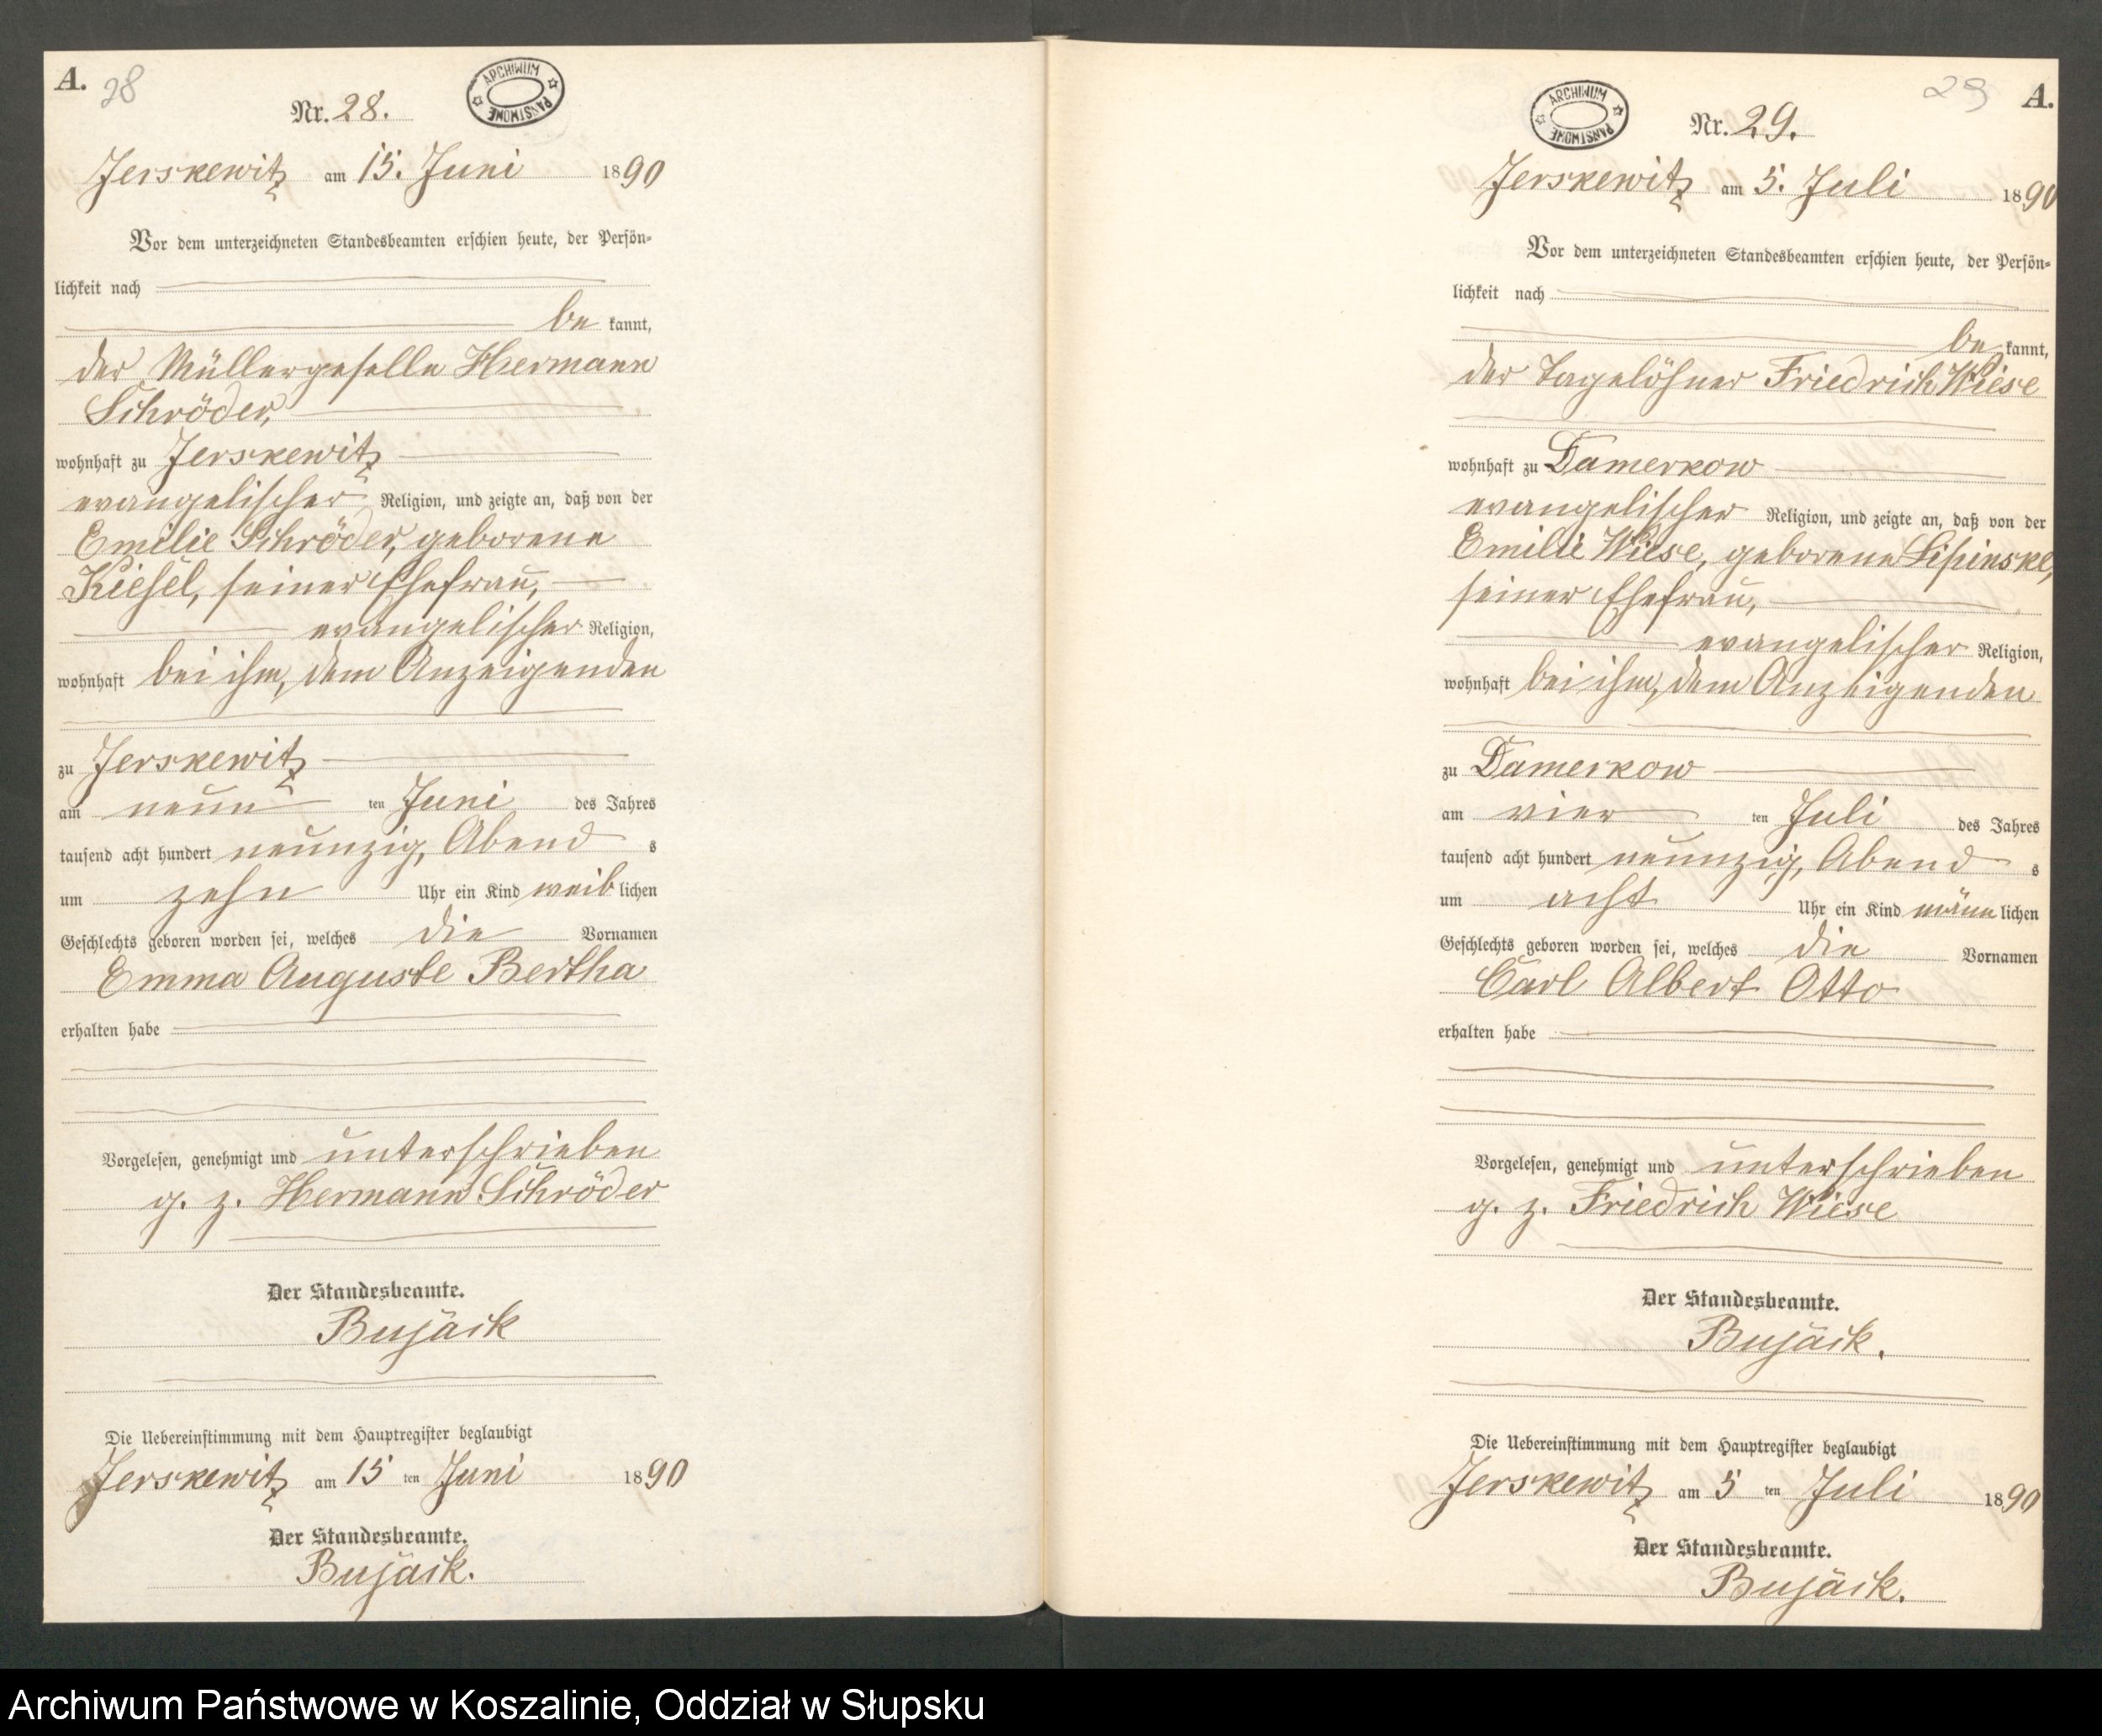 A. 28
ARCHIWUM PAŃSTWOWE
Nr. 28.
Jerskewitz am 15. Juni 1890
Vor dem unterzeichneten Standesbeamten erschien heute, der Persön-
lichkeit nach
be kannt,
der Müllergeselle Hermann
Schröder,
wohnhaft zu Jerskewitz
evangelischer Religion, und zeigte an, daß von der
Emilie Schröder, geborene
Kiesel, seiner Ehefrau,
evangelischer Religion,
wohnhaft bei ihm, dem Anzeigenden
zu Jerskewitz
am neun ten Juni des Jahres
tausend acht hundert neunzig, Abend s
um zehn Uhr ein Kind weib lichen
Geschlechts geboren worden sei, welches die Vornamen
Emma Auguste Bertha
erhalten habe
Vorgelesen, genehmigt und unterschrieben
g. z. Hermann Schröder
Der Standesbeamte.
Bujäck
Die Uebereinstimmung mit dem Hauptregister beglaubigt
Jerskewitz am 15 ten Juni 1890
Der Standesbeamte.
Bujäck.
29 A.
ARCHIWUM PAŃSTWOWE
Nr. 29.
Jerskewitz am 5. Juli 1890
Vor dem unterzeichneten Standesbeamten erschien heute, der Persön-
lichkeit nach
be kannt,
der Tagelöhner Friedrich Wiese
wohnhaft zu Damerkow
evangelischer Religion, und zeigte an, daß von der
Emilie Wiese, geborene Lipinske,
seiner Ehefrau,
evangelischer Religion,
wohnhaft bei ihm, dem Anzeigenden
zu Damerkow
am vier ten Juli des Jahres
tausend acht hundert neunzig, Abend s
um acht Uhr ein Kind männ lichen
Geschlechts geboren worden sei, welches die Vornamen
Carl Albert Otto
erhalten habe
Vorgelesen, genehmigt und unterschrieben
g. z. Friedrich Wiese
Der Standesbeamte.
Bujäck.
Die Uebereinstimmung mit dem Hauptregister beglaubigt
Jerskewitz am 5 ten Juli 1890
Der Standesbeamte.
Bujäck.
Archiwum Państwowe w Koszalinie, Oddział w Słupsku